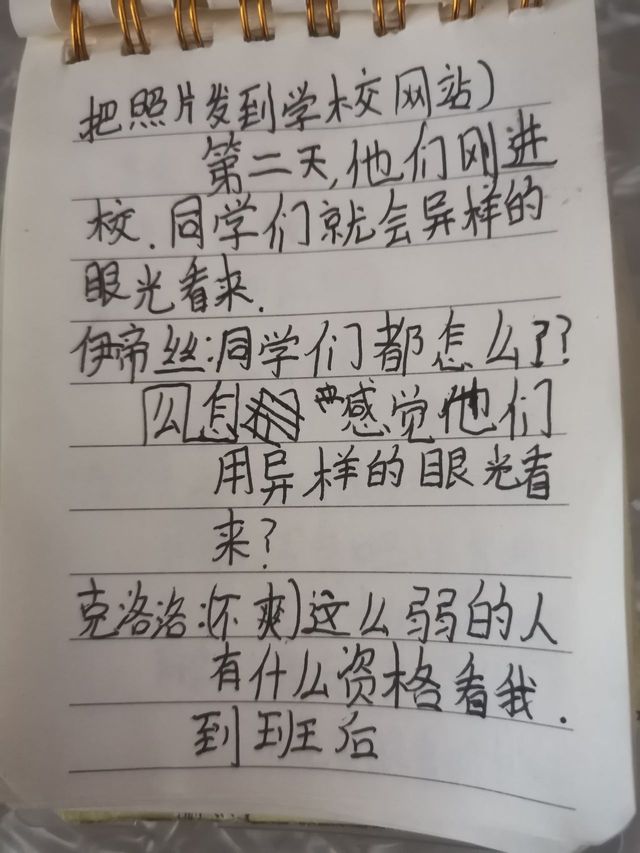 把照片发到学校网站)
第二天,他们刚进
校.同学们就会异样的
眼光看来.
伊帝丝:同学们都怎么了?
么怎 感觉他们
用异样的眼光看
来?
克洛洛:(不爽)这么弱的人
有什么资格看我.
到班后